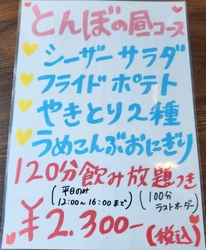 とんぼの昼コース
シーザーサラダ
フライドポテト
やきとり2種
うめこんぶおにぎり
120分飲み放題つき
(平日のみ
12:00～16:00まで)
(100分
ラストオーダー)
¥2.300-(税込)